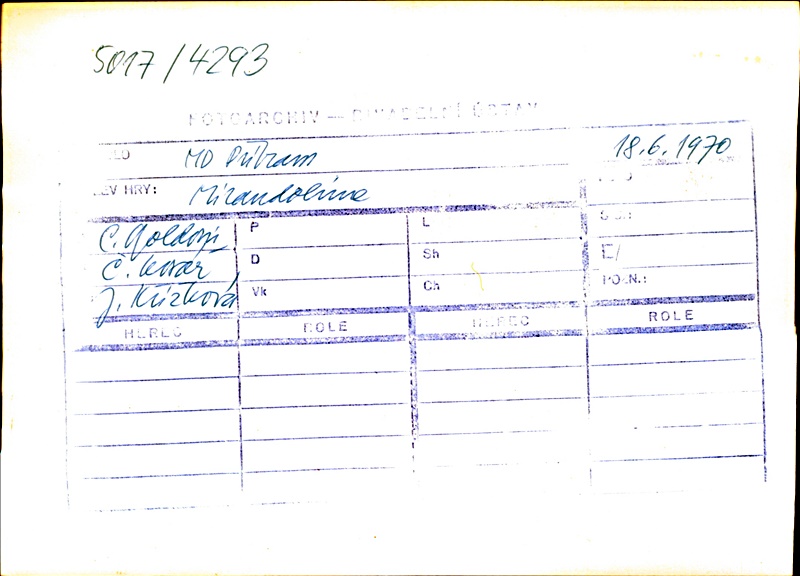 5017/4293
FOTOARCHIV — DIVADELNÍ ÚSTAV
MD Příbram 18.6.1970
EV HRY: Mirandolina
C. Goldoni P L
Č. Kovář D Sh E/
J. Křížková Vk Ch POZN.:
HEREC ROLE HEREC ROLE